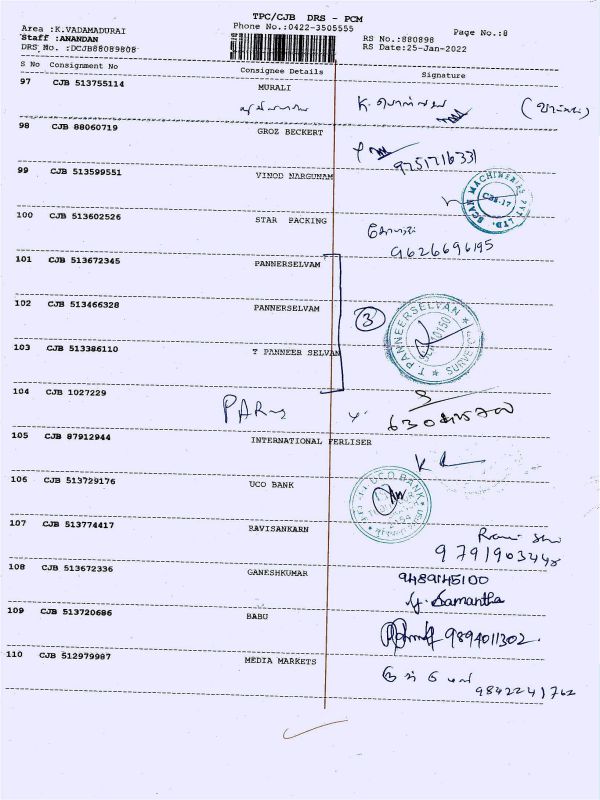 TPC/CJB DRS - PCM
Area :K.VADAMADURAI
Phone No.:0422-3505555
Page No.:8
Staff :ANANDAN
RS No.:880898
DRS No. :DCJB88089808
RS Date:25-Jan-2022
S No Consignment No Consignee Details Signature
97 CJB 513755114 MURALI
98 CJB 88060719 GROZ BECKERT
9751716331
99 CJB 513599551 VINOD NARGUNAM
SCAN MACHINERIES PVT. LTD.
CBE-17
100 CJB 513602526 STAR PACKING
9626696195
101 CJB 513672345 PANNERSELVAM
102 CJB 513466328 PANNERSELVAM
3
T PANNEERSELVAN
103 CJB 513386110 T PANNEER SELVAN
104 CJB 1027229
105 CJB 87912944 INTERNATIONAL FERLISER
106 CJB 513729176 UCO BANK
UCO BANK
107 CJB 513774417 RAVISANKARN
108 CJB 513672336 GANESHKUMAR
9489145100
y. Samantha
109 CJB 513720686 BABU
9894011302.
110 CJB 512979987 MEDIA MARKETS
9842241762